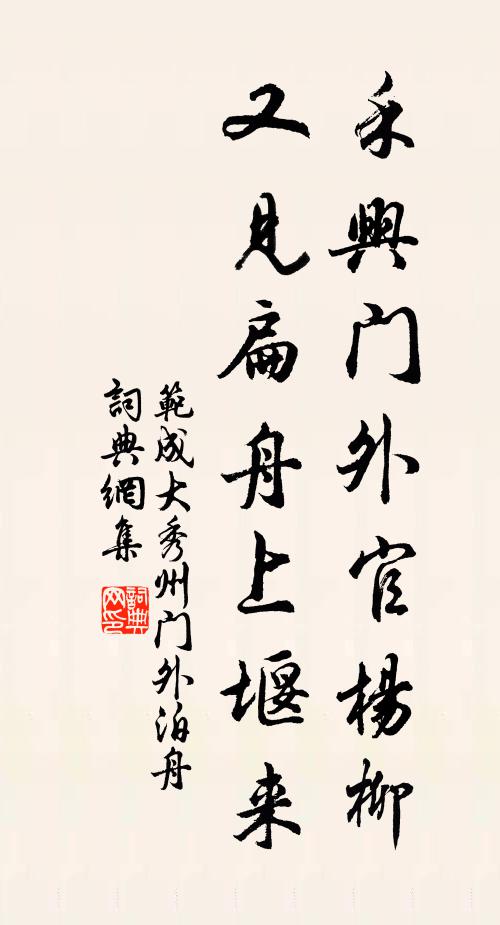 禾興門外官楊柳
又見扁舟上堰来
範成大秀州門外泊舟
詞典網集
詞典网印